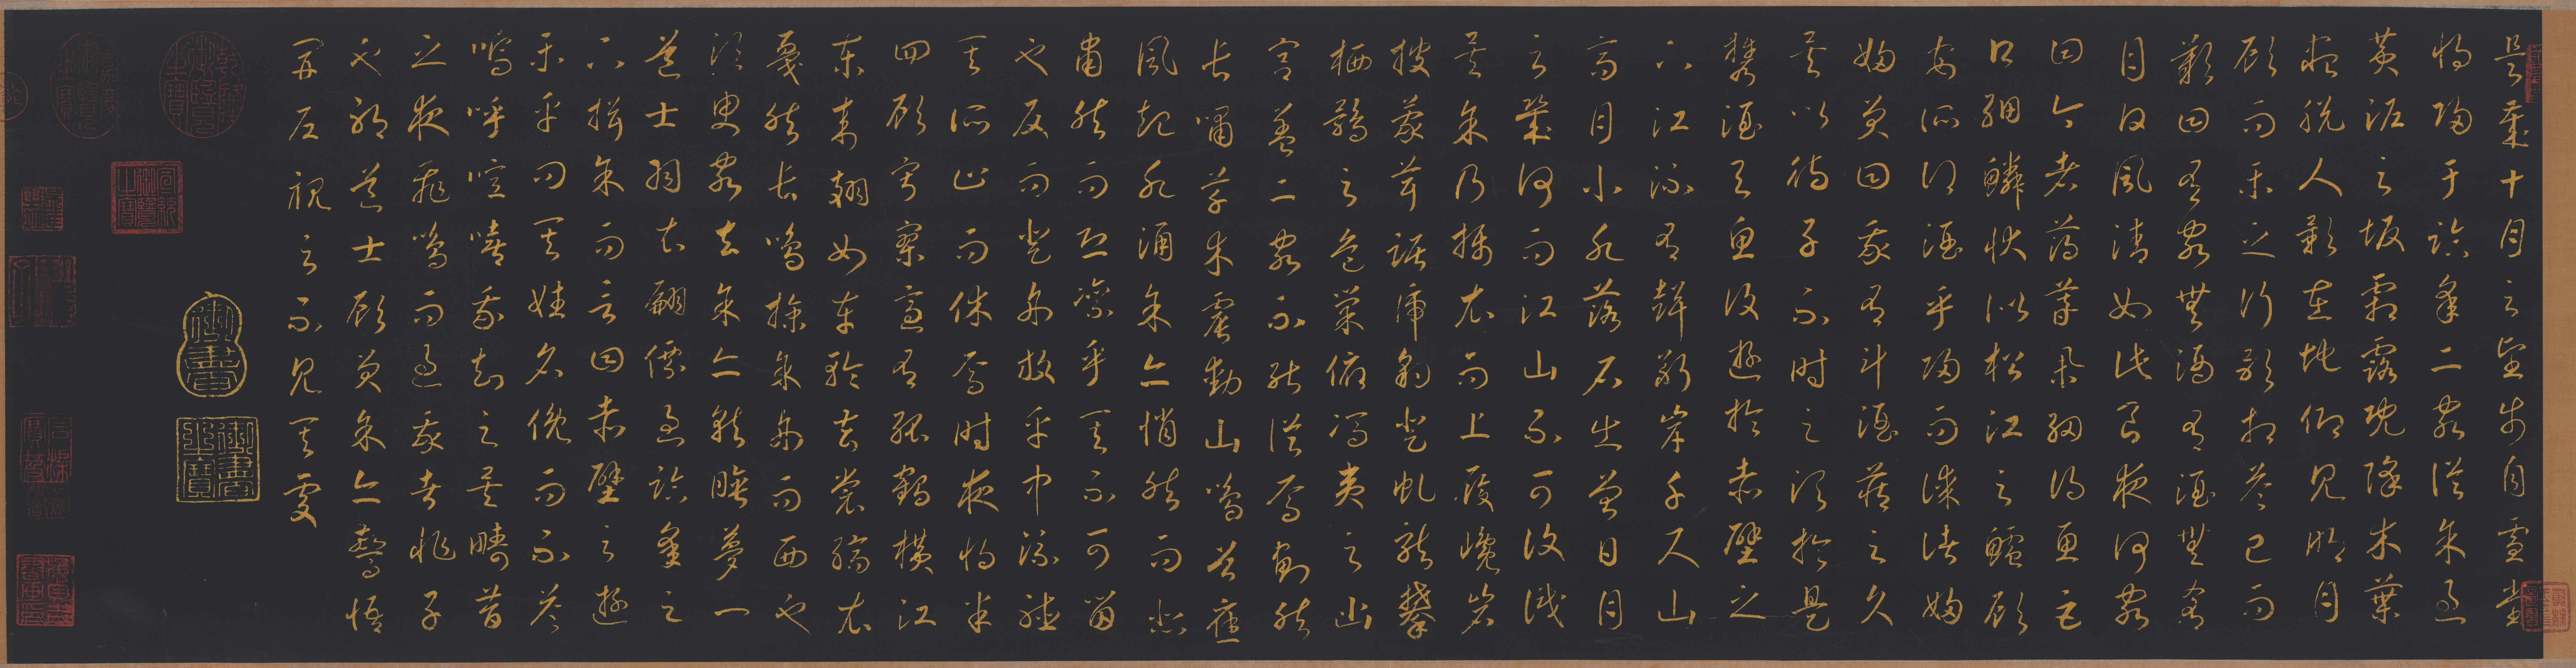 是歲十月之望步自雪堂
將歸于臨皋二客從余過
黃泥之坂霜露既降木葉
盡脫人影在地仰見明月
顧而樂之行歌相答已而
歎曰有客無酒有酒無肴
月白風清如此良夜何客
曰今者薄暮舉網得魚巨
口細鱗狀似松江之鱸顧
安所得酒乎歸而謀諸婦
婦笑曰我有斗酒藏之久
矣以待子不時之須於是
攜酒與魚復遊於赤壁之
下江流有聲斷岸千尺山
高月小水落石出曾日月
之幾何而江山不可復識
矣余乃攝衣而上履巉岩
披蒙茸踞虎豹登虯龍攀
栖鶻之危巢俯馮夷之幽
宮蓋二客不能從焉劃然
長嘯草木震動山鳴谷應
風起水涌余亦悄然而悲
肅然而恐凜乎其不可留
也反而登舟放乎中流聽
其所止而休焉時夜將半
四顧寂寥適有孤鶴橫江
東來翅如車輪玄裳縞衣
戛然長鳴掠余舟而西也
須臾客去余亦就睡夢一
道士羽衣翩僊過臨皋之
下揖余而言曰赤壁之遊
樂乎問其姓名俛而不答
嗚呼噫嘻我知之矣疇昔
之夜飛鳴而過我者非子
也耶道士顧笑余亦驚悟
開戶視之不見其處
御書
御書之寶
乾隆御覽之寶
嘉慶御覽之寶
宣統御覽之寶